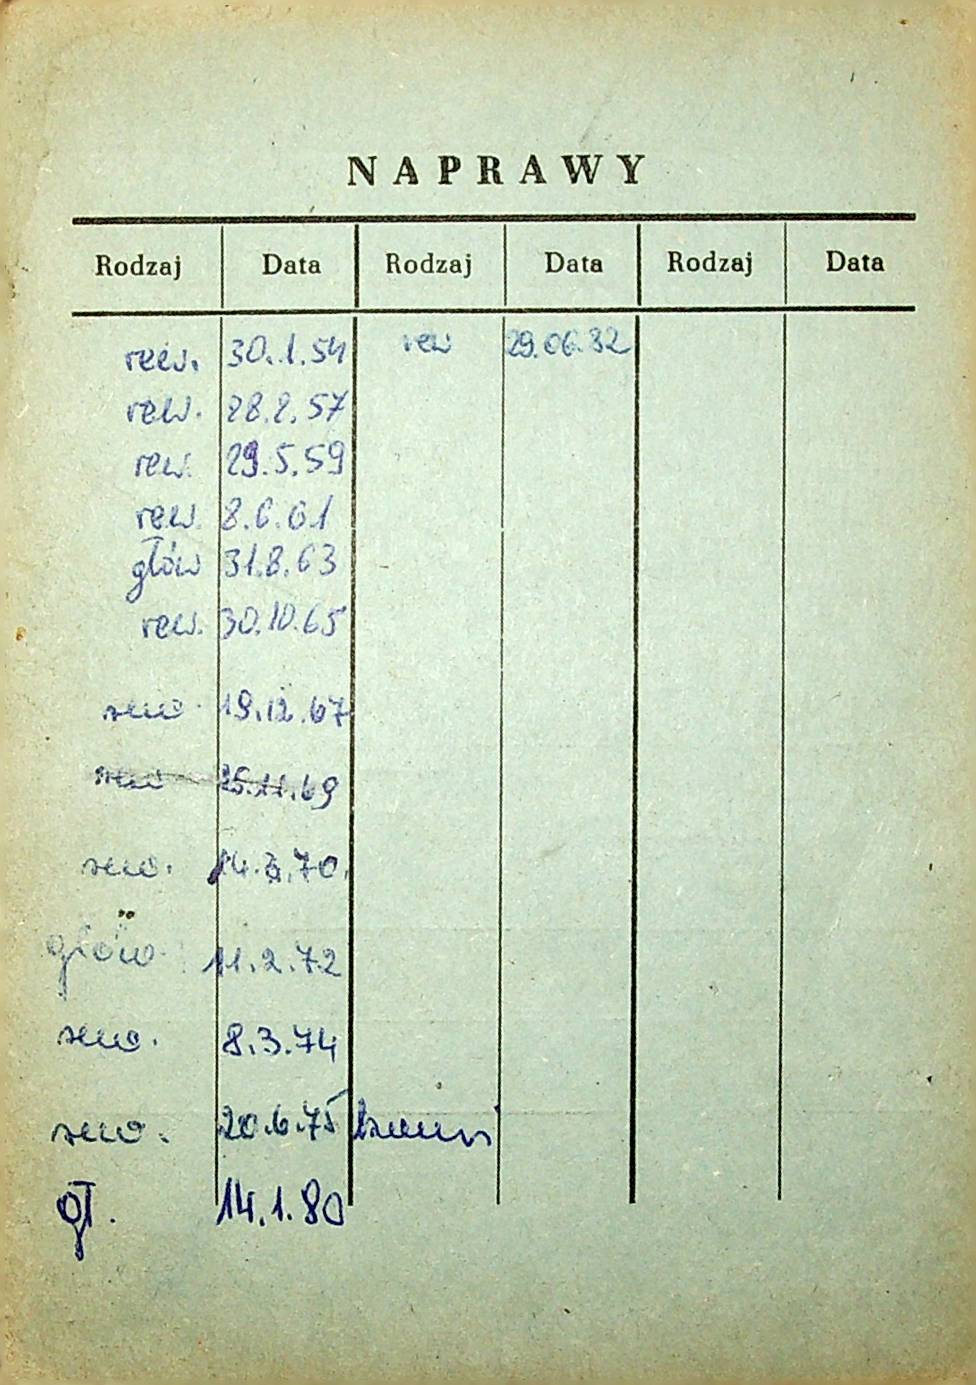 NAPRAWY
Rodzaj Data Rodzaj Data Rodzaj Data
rew. 30.1.54 rew 29.06.82
rew. 28.2.57
rew. 29.5.59
rew. 8.6.61
głów 31.8.63
rew. 30.10.65
rew. 19.12.67
rew 25.11.69
rew. 14.3.70.
głów. 11.2.72
rew. 8.3.74
rew. 20.6.75
gł. 14.1.80